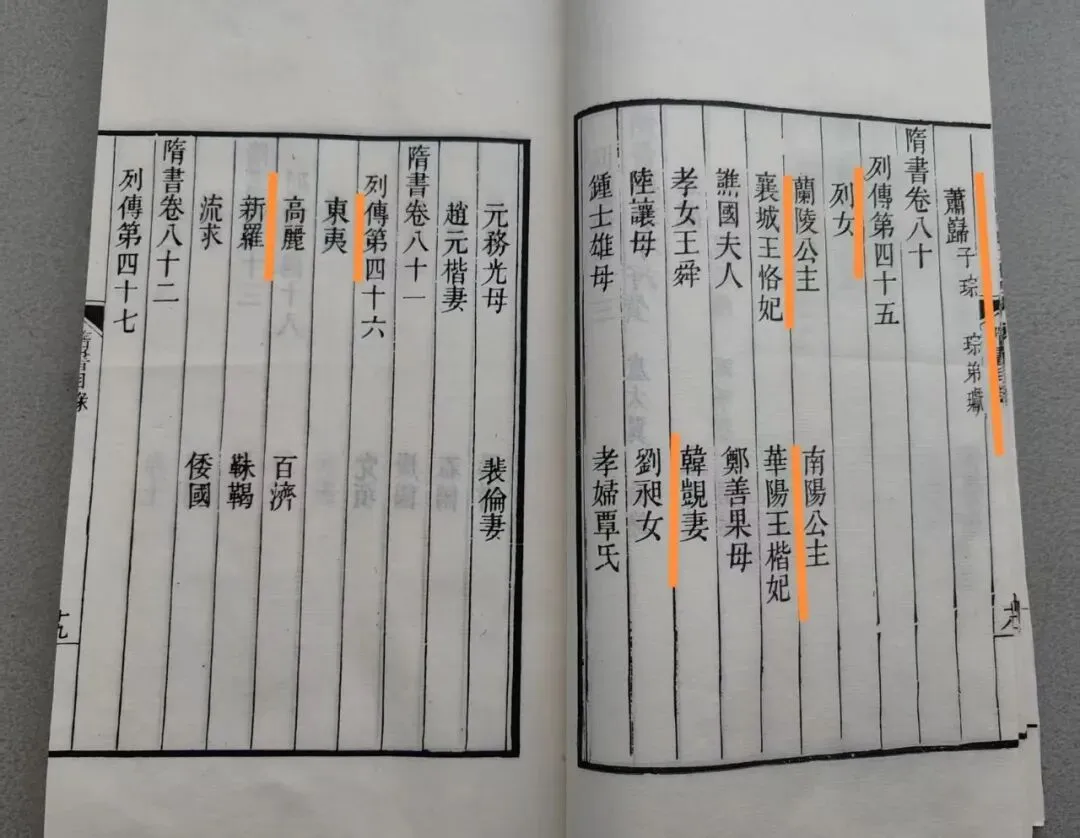 蕭巋 子琮 琮弟瓛
隋書卷八十
列傳第四十五
列女
蘭陵公主 南陽公主
襄城王恪妃 華陽王楷妃
譙國夫人 鄭善果母
孝女王舜 韓覬妻
陸讓母 劉昶女
鍾士雄母 孝婦覃氏
元務光母 裴倫妻
趙元楷妻
隋書卷八十一
列傳第四十六
東夷
高麗 百濟
新羅 靺鞨
流求 倭國
隋書卷八十二
列傳第四十七
隋書目錄
十九